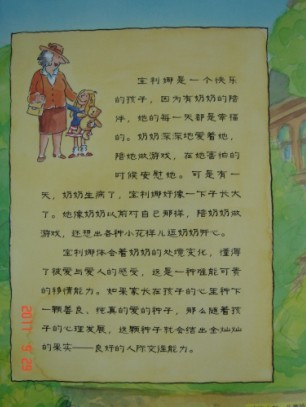 宝利娜是一个快乐
的孩子，因为有奶奶的陪
伴，她的每一天都是幸福
的。奶奶深深地爱着她，
陪她做游戏，在她害怕的
时候安慰她。可是有一
天，奶奶生病了，宝利娜好像一下子长大
了。她像奶奶以前对自己那样，陪奶奶做
游戏，还想出各种小花样儿逗奶奶开心。
宝利娜体会着奶奶的处境变化，懂得
了被爱与爱人的感受，这是一种难能可贵
的移情能力。如果家长在孩子的心里种下
一颗善良、纯真的爱的种子，那么随着孩
子的心理发展，这颗种子就会结出金灿灿
的果实——良好的人际交往能力。
2011 9 29